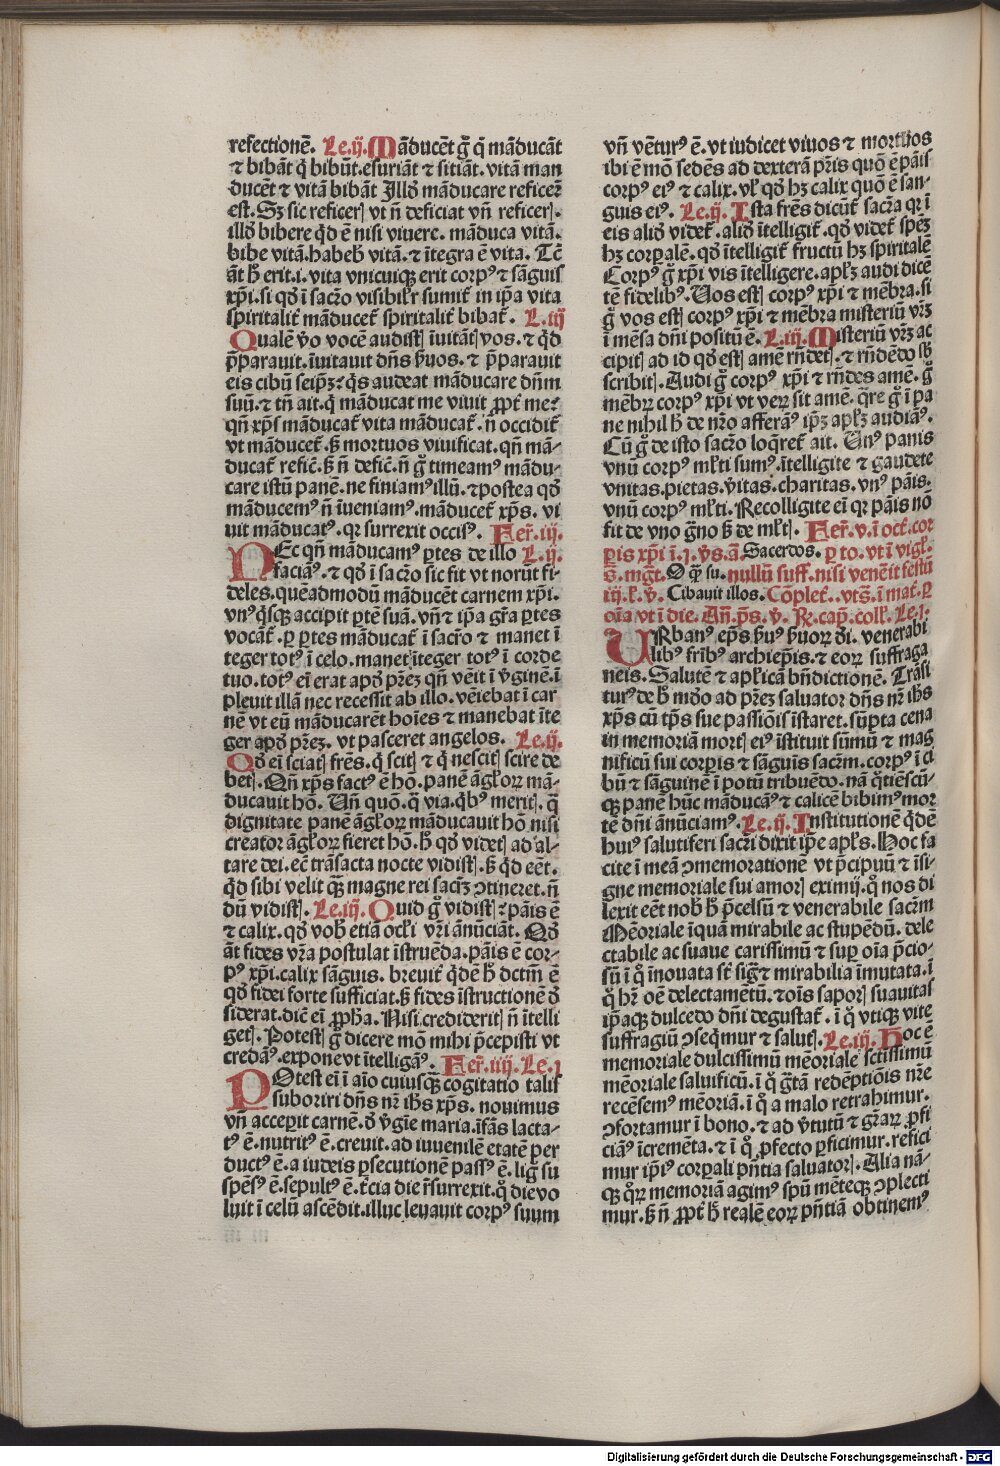 refectionē. Le.ij. Māducēt gͦ q̄ māducāt
⁊ bibāt q̇ bibūt. esuriāt ⁊ sitiāt. vitā man
ducēt ⁊ vitā bibāt Illd̕ māducare reficeꝛ̄
est. Sꝫ sic reficerꝭ vt n̄ deficiat vn̄ reficerꝭ.
illd̕ bibere qd̕ ē nisi viuere. māduca vitā.
bibe vitā. habeb̕ vitā. ⁊ ītegra ē vita. Tc̄
āt h̕ erit. i. vita vnicuiqꝫ erit corpꝰ ⁊ sāguis
xp̄i. si qd̕ ī sacr̄o visibil̕r sumit̕ in ip̄a vita
spiritalit̕ māducet̕ spiritalit̕ bibat̕. L.iij
Qualē v̕o vocē audistꝭ īuitātꝭ vos. ⁊ qd̕
p̄parauit. īuitauit dn̄s s̕uos. ⁊ p̄parauit
eis cibū seip̄ꝫ. q̇s audeat māducare dn̄m
suū. ⁊ tn̄ ait. q̇ māducat me viuit ꝓpt̕ me.
qn̄ xp̄s māducat̕ vita māducat̕. n̄ occidit̕
vt māducet̕. sꝫ mortuos viuificat. qn̄ mā-
ducat̕ reficē. sꝫ n̄ deficē. n̄ gͦ timeamꝰ mādu-
care istū panē. ne finiamꝰ illū. ⁊ postea qd̕
māducemꝰ n̄ īueniamꝰ. māducet̕ xp̄s. vi
uit māducatꝰ. qꝛ surrexit occisꝰ. Fer̄. iij.
NEc qn̄ māducamꝰ ꝑtes de illo L.ij.
faciāꝰ. ⁊ qd̕ ī sacr̄o sic fit vt norūt fi-
deles. quēadmodū māducēt carnem xp̄i.
vnꝰq̇sqꝫ accipit ꝑtē suā. vn̄ ⁊ ip̄a gr̄a ꝑtes
vocāt̕. ꝑ ꝑtes māducat̕ ī sacr̄o ⁊ manet ī
teger totꝰ ī celo. manet īteger totꝰ ī corde
tuo. totꝰ eī erat apd̕ pr̄eꝫ qn̄ vēit ī v̕ginē. ī
pleuit illā nec recessit ab illo. vēiebat ī car
nē vt eū māducarēt hoīes ⁊ manebat īte
ger apd̕ pr̄eꝫ. vt pasceret angelos. Le.ij.
Qd̕ eī sciatꝭ fr̄es. q̇ scitꝭ ⁊ q̇ nescitꝭ scire de
betꝭ. Qn̄ xp̄s factꝰ ē hō. panē āgl̕oꝝ mā-
ducauit hō. Un̄ quo. q̄ via. q̇bꝰ meritꝭ. q̄
dignitate panē āgl̕oꝝ māducauit hō nisi
creator āgl̕oꝝ fieret hō. h̕ qd̕ videtꝭ ad al-
tare dei. ec̄ trāsacta nocte vidistꝭ. sꝫ qd̕ eēt.
qd̕ sibi velit qꝫ̄ magne rei sacr̄ꝫ ꝯtineret. n̄
dū vidistꝭ. Le.iij. Quid gͦ vidistꝭ? pāis ē
⁊ calix. qd̕ vob̕ etiā ocl̕i vr̄i ānūciāt. Qd̕
āt fides vr̄a postulat īstruēda. pāis ē cor-
pꝰ xp̄i. calix sāguis. breuit̕ qd̕ē h̕ dctm̄ ē
qd̕ fidei forte sufficiat. sꝫ fides īstructionē d̕
siderat. dic̄ eī ꝓph̕a. Nisi credideritꝭ n̄ ītelli
getꝭ. Potestꝭ gͦ dicere mō mihi p̄cepisti vt
credāꝰ. expone vt ītelligāꝰ. Fer̄. iiij. Le.ꝭ
POtest eī ī aīo cuiusqꝫ̄ cogitatio talis
suboriri dn̄s nr̄ ih̄s xp̄s. nouimus
vn̄ accepit carnē. d̕ v̕gīe maria. īfās lacta-
tꝰ ē. nutritꝰ ē. creuit. ad iuuenilē etatē per
ductꝰ ē. a iudeis ꝑsecutionē passꝰ ē. lig̕ su
spēsꝰ ē. sepultꝰ ē. t̕cia die r̄surrexit. q̊ die vo
luit ī celū ascēdit. illuc leuauit corpꝰ suum
vn̄ vēturꝰ ē. vt iudicet viuos ⁊ mortuos
ibi ē mō sedēs ad dexterā pr̄is quō ē pāis
corpꝰ eiꝰ ⁊ calix. vl̕ qd̕ hꝫ calix quō ē san-
guis eiꝰ. Le.ij. Ista fr̄es dicūt̕ sacr̄a qꝛ ī
eis aliḋ videt̕. aliḋ ītelligit̕. qd̕ videt̕ spēꝫ
hꝫ corpalē. qd̕ ītelligit̕ fructū hꝫ spiritalē
Corpꝰ gͦ xp̄i vis ītelligere. apl̕ꝫ audi dicē
tē fidelibꝰ. Uos estꝭ corpꝰ xp̄i ⁊ mēbra. si
gͦ vos estꝭ corpꝰ xp̄i ⁊ mēbra misteriū vr̄ꝫ
ī mēsa dn̄i positū ē. L.iij. Misteriū vr̄ꝫ ac
cipitꝭ ad id qd̕ estꝭ amē rn̄detꝭ. ⁊ rn̄dēdo sb̕
scribitꝭ. Audi gͦ corpꝰ xp̄i ⁊ rn̄des amē. gͦ
mēbꝝ corpꝰ xp̄i vt veꝝ sit amē. q̄re gͦ ī pa
ne nihil h̕ de nr̄o afferāꝰ ip̄ꝫ apl̕ꝫ audiāꝰ.
Cū gͦ de isto sacr̄o loq̄ret̕ ait. Unꝰ panis
vnū corpꝰ ml̕ti sumꝰ. ītelligite ⁊ gaudete
vnitas. pietas. v̕itas. charitas. vnꝰ pāis.
vnū corpꝰ ml̕ti. Recolligite eī qꝛ pāis nō
fit de vno g̊no sꝫ de ml̕tꝭ. Fer̄. v. ī oct̕. cor
pis xp̄i ī. ꝭ. v̕s. ā. Sacerdos. ꝑ to. vt ī vigl̕.
S̕. mg̕t. O q̄ su. nullū suff. nisi venēit festū
iij. l̕. v̕. Cibauit illos. Cōplet̕. vtS̕. ī mat̕. ꝑ
oīa vt ī die. An̄. ps̄. v̕. ꝶ. cap̄. coll̕. Le.ꝭ.
URbanꝰ ep̄s s̕uꝰ s̕uoꝝ di. venerabi
libꝰ fr̄ibꝰ archiep̄is. ⁊ eoꝝ suffraga
neis. Salutē ⁊ apl̕icā bn̄dictionē. Trāsi
turꝰ de h̕ mūdo ad pr̄eꝫ saluator dn̄s nr̄ ih̄s
xp̄s cū tp̄s sue passiōis īstaret. sūpta cena
in memoriā mortꝭ eiꝰ īstituit sūmū ⁊ mag
nificū sui corpis ⁊ sāguīs sacr̄m. corpꝰ ī ci
bū ⁊ sāguinē ī potū tribuēdo. nā q̊tiēscū-
qꝫ panē hūc māducāꝰ ⁊ calicē bibimꝰ mor
tē dn̄i ānūciamꝰ. Le.ij. Institutionē qd̕ē
huiꝰ salutiferi sacr̄i dixit ip̄e apl̕s. Hoc fa
cite ī meā ꝯmemorationē vt p̄cipuū ⁊ īsi-
gne memoriale sui amorꝭ eximij. q̊ nos di
lexit eēt nob̕ h̕ p̄celsū ⁊ venerabile sacr̄m
Mēoriale īquā mirabile ac stupēdū. dele
ctabile ac suaue carissimū ⁊ suꝑ oīa p̄cio-
sū ī q̊ īnouata st̕ sig̕ ⁊ mirabilia īmutata. ī
q̊ hꝛ̄ oē delectamētū. ⁊ oīs saporꝭ suauitas
ip̄aqꝫ dulcedo dn̄i degustat̕. ī q̊ vtiqꝫ vite
suffragiū ꝯseq̄mur ⁊ salutꝭ. Le.iij. Hoc ē
memoriale dulcissimū mēoriale sctissimū
mēoriale saluificū. ī q̊ g̕tā redēptiōis nr̄e
recēsemꝰ mēoriā. ī q̊ a malo retrahimur.
ꝯfortamur ī bono. ⁊ ad v̕tutū ⁊ gr̄aꝝ ꝓfi
ciāꝰ īcremēta. ⁊ ī q̊ ꝓfecto ꝑficimur. refici
mur ip̄iꝰ corpali pn̄tia saluatorꝭ. Alia nā-
qꝫ q̊ꝝ memoriā agimꝰ spū mēteqꝫ ꝯplecti
mur. sꝫ n̄ ꝓpt̕ h̕ realē eoꝝ pn̄tiā obtinemꝰ
Digitalisierung gefördert durch die Deutsche Forschungsgemeinschaft - DFG